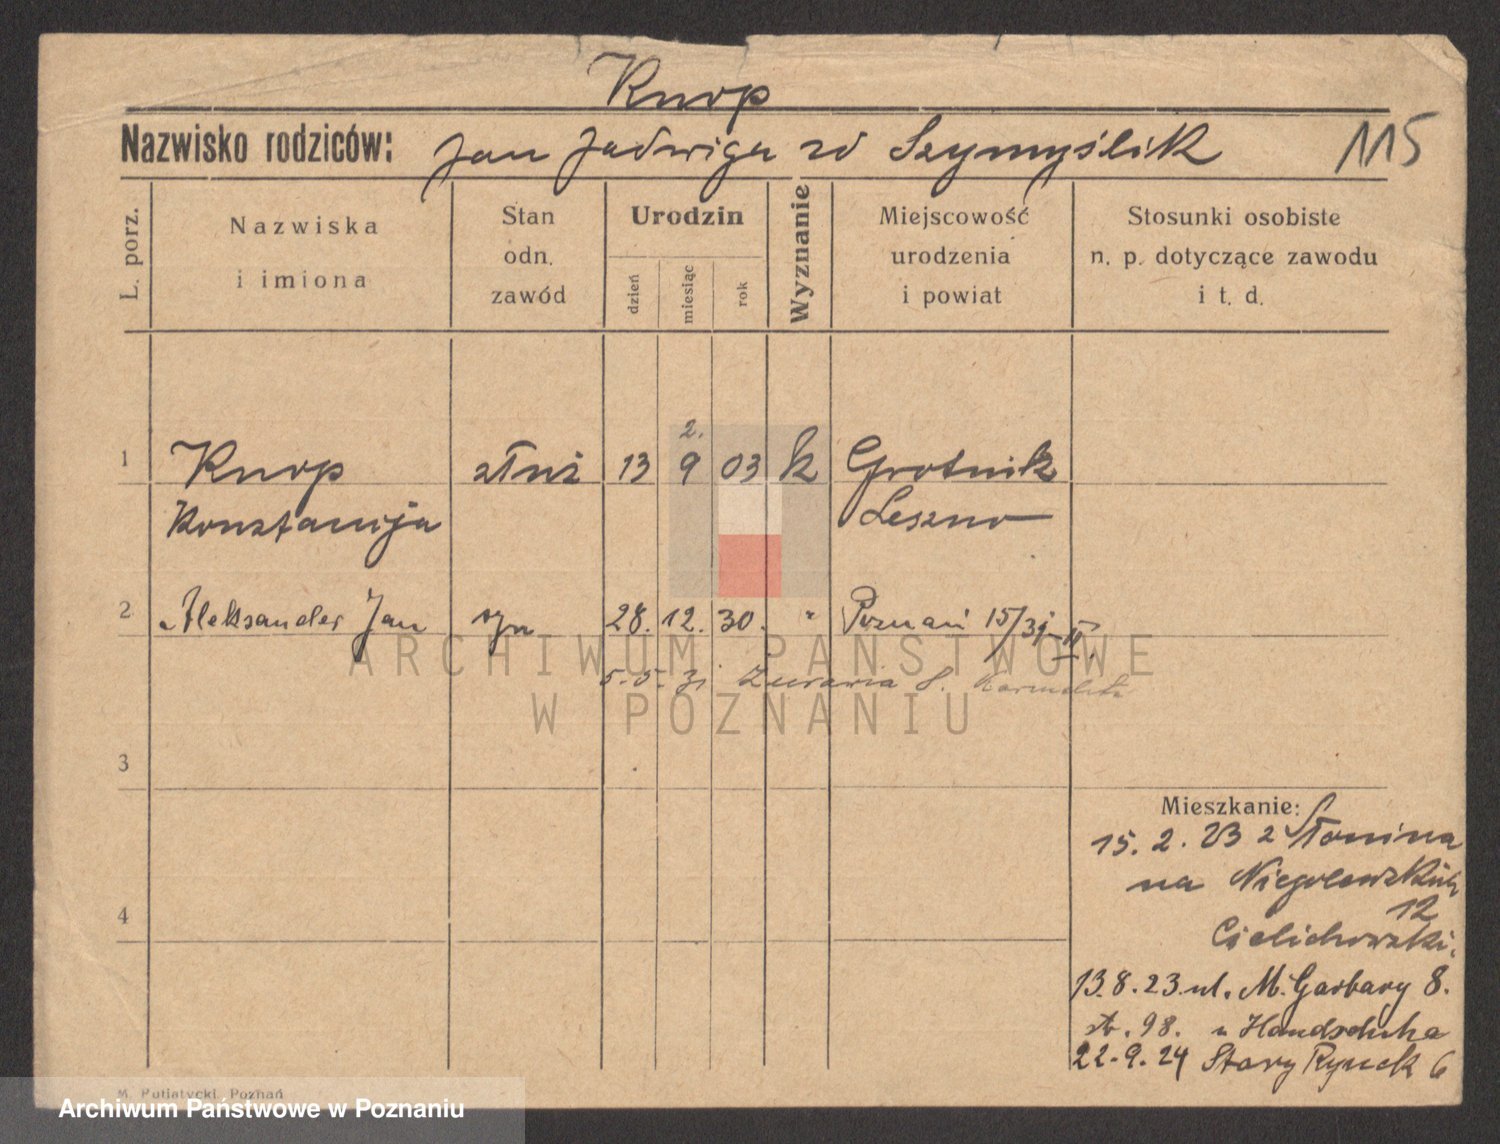 Knop
Nazwisko rodziców: Jan Jadwiga zd Szymyślik 115
L. porz.
Nazwiska i imiona
Stan odn. zawód
Urodzin
dzień miesiąc rok
Wyznanie
Miejscowość urodzenia i powiat
Stosunki osobiste n. p. dotyczące zawodu i t. d.
2.
1 Knop służ 13 9 03 k Grotnik
Konstancja Leszno
2 Aleksander Jan syn 28. 12. 30. " Poznań 15/31 II.
5.5.31
ARCHIWUM PAŃSTWOWE
W POZNANIU
3
Mieszkanie:
15. 2. 23 z Słonina
na Niegolewskich
12
4
Cielichowski.
13.8.23. ul. M. Garbary 8.
u Handschuha
22-9-24 Stary Rynek 6
M. Putiatycki, Poznań
Archiwum Państwowe w Poznaniu